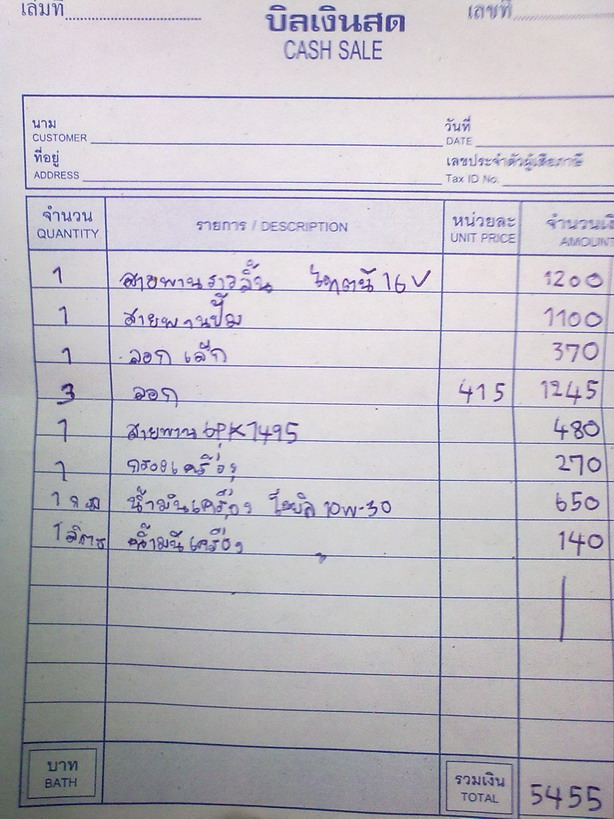 เล่มที่
บิลเงินสด
เลขที่
CASH SALE
นาม
CUSTOMER
วันที่
DATE
ที่อยู่
ADDRESS
เลขประจำตัวผู้เสียภาษี
Tax ID No.
จำนวน รายการ / DESCRIPTION หน่วยละ จำนวนเงิ
QUANTITY UNIT PRICE AMOUNT
1 สายพานราวลิ้น ไทตนั 16 V 1200
1 สายพานปั๊ม 1100
1 ลอก เล็ก 370
3 ลอก 415 1245
1 สายพาน 6PK1495 480
1 กรองเครื่อง 270
1 น้ำมันเครื่อง 10W-30 650
1 ลิตร น้ำมันเครื่อง 140
บาท
BATH
รวมเงิน
TOTAL
5455